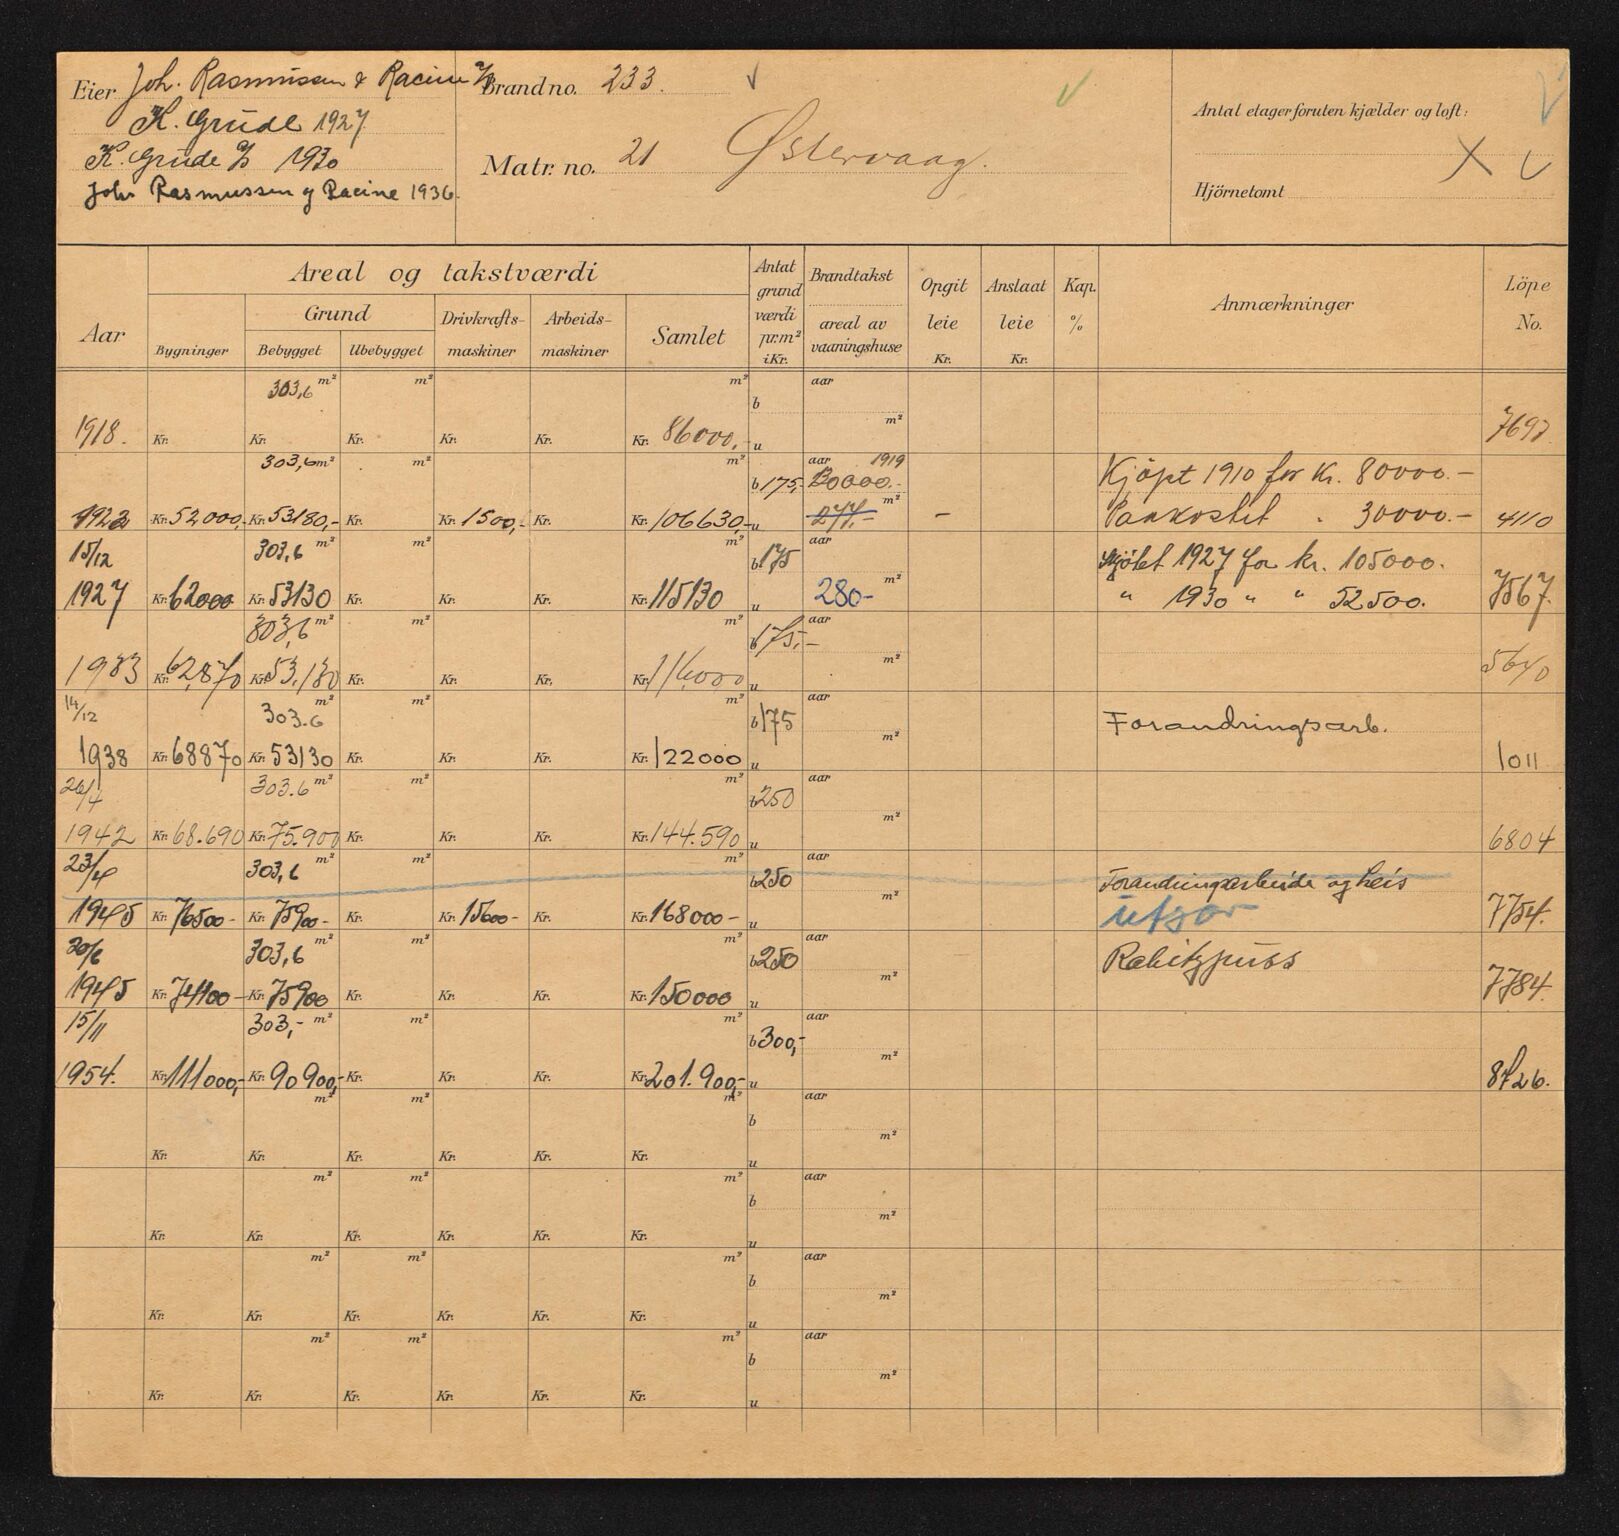 Eier Joh. Rasmussen & Racine A/S
K. Grude 1927
K. Grude A/S 1930
Joh. Rasmussen og Racine 1936.
Brand no. 233.
Matr. no. 21 Østervaag.
Antal etager foruten kjælder og loft:
Hjörnetomt
Areal og takstværdi
Aar
Bygninger
Grund
Bebygget
Ubebygget
Drivkrafts-maskiner
Arbeids-maskiner
Samlet
Antat grund værdi pr. m² i Kr.
Brandtakst
areal av vaaningshuse
Opgit leie Kr.
Anslaat leie Kr.
Kap. %
Anmærkninger
Löpe No.
303,6 m² m² m² aar
b
1918. Kr. Kr. Kr. Kr. Kr. Kr. 86000,- u m² 7697
303,6 m² m² m² b 175,- aar 1919 Kjöpt 1910 for Kr. 80000.-
1922 Kr. 52000,- Kr. 53130,- Kr. Kr. 1500,- Kr. Kr. 106630,- u 277,- m² - Paakostet " 30000.- 4110
15/12 303,6 m² m² m² b 175 aar Skjötet 1927 for kr. 105000.
1927 Kr. 62000 Kr. 53130 Kr. Kr. Kr. Kr. 115130 u 280- m² " 1930 " " 52500. 7567.
303,6 m² m² m² b 175,- aar
1933 Kr. 62,870 Kr. 53,130 Kr. Kr. Kr. Kr. 116,000 u m² 5640
14/12 303.6 m² m² m² b 175 aar Forandringsarb.
1938 Kr. 68870 Kr. 53130 Kr. Kr. Kr. Kr. 122000 u m² 1011
26/4 303.6 m² m² m² b 250 aar
1942 Kr. 68.690 Kr. 75.900 Kr. Kr. Kr. Kr. 144.590 u m² 6804
23/4 303,6 m² m² m² b 250 aar Forandringsarbeide og heis
1945 Kr. 76500- Kr. 75900- Kr. Kr. 15600- Kr. Kr. 168000- u m² utgår 7754.
20/6 303,6 m² m² m² b 250 aar Rabitzpuss
1945 Kr. 74100- Kr. 75900 Kr. Kr. Kr. Kr. 150000 u m² 7784.
15/11 303,- m² m² m² b 300,- aar
1954. Kr. 111000,- Kr. 90900,- Kr. Kr. Kr. Kr. 201.900,- u m² 8726.
m² m² m² b aar
Kr. Kr. Kr. Kr. Kr. Kr. u m²
m² m² m² b aar
Kr. Kr. Kr. Kr. Kr. Kr. u m²
m² m² m² b aar
Kr. Kr. Kr. Kr. Kr. Kr. u m²
m² m² m² b aar
Kr. Kr. Kr. Kr. Kr. Kr. u m²